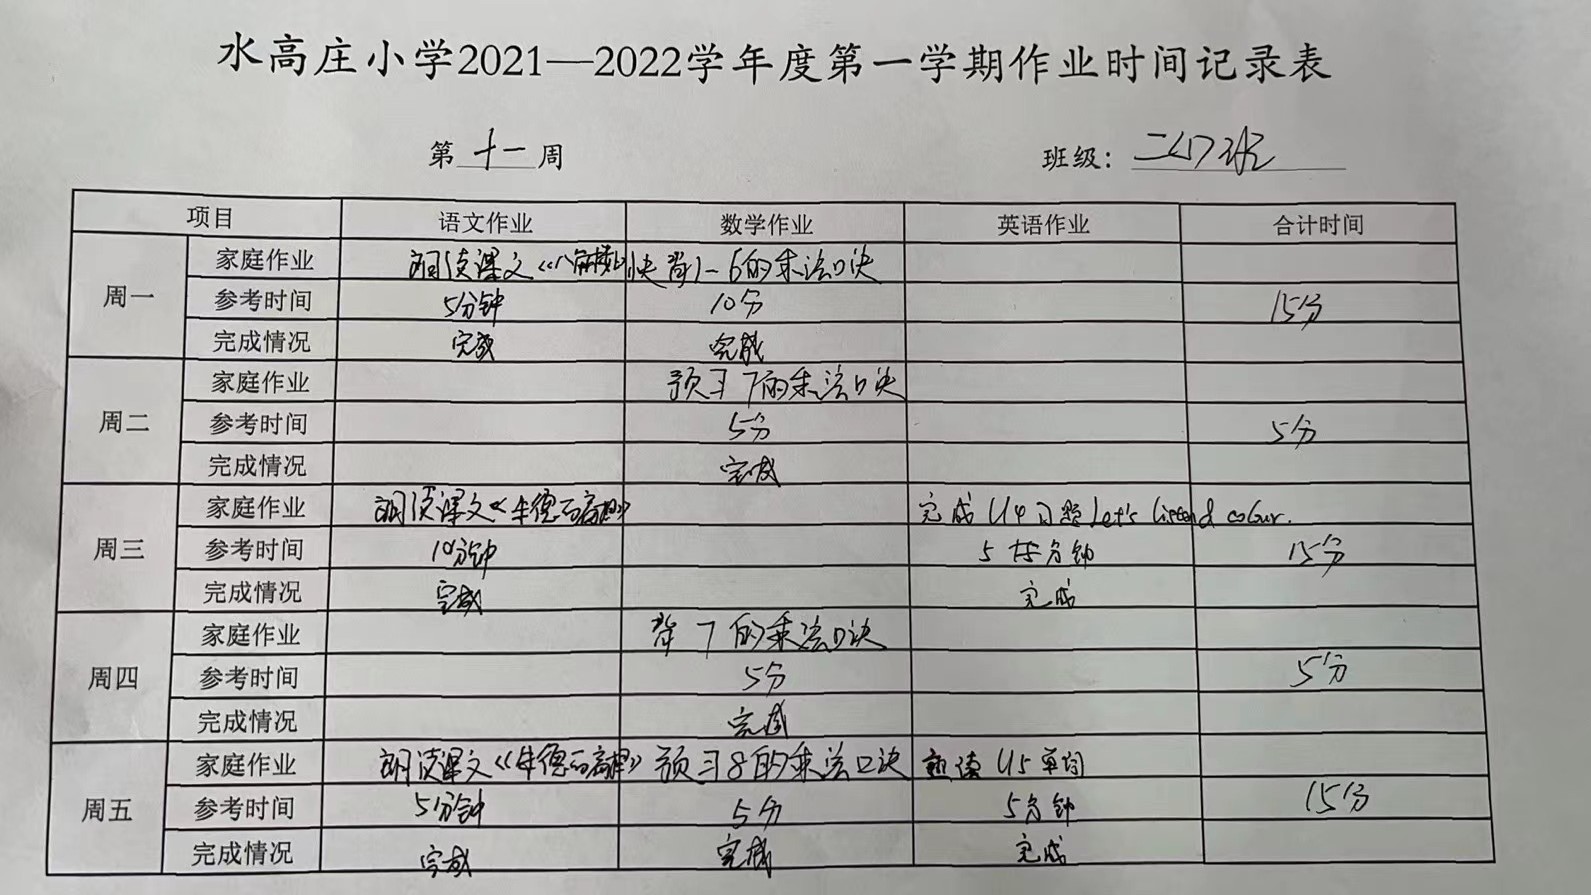 水高庄小学2021—2022学年度第一学期作业时间记录表
第十一周 班级：二(1)班
项目 语文作业 数学作业 英语作业 合计时间
周一 家庭作业 朗读课文《八角楼上》 快背1-6的乘法口诀
参考时间 5分钟 10分 15分
完成情况 完成 完成
周二 家庭作业 预习7的乘法口诀
参考时间 5分 5分
完成情况 完成
周三 家庭作业 朗读课文《朱德的扁担》 完成U4习题Let's listen & colour.
参考时间 10分钟 5分钟 15分
完成情况 完成 完成
周四 家庭作业 背7的乘法口诀
参考时间 5分 5分
完成情况 完成
周五 家庭作业 朗读课文《朱德的扁担》 预习8的乘法口诀 熟读U5单词
参考时间 5分钟 5分 5分钟 15分
完成情况 完成 完成 完成